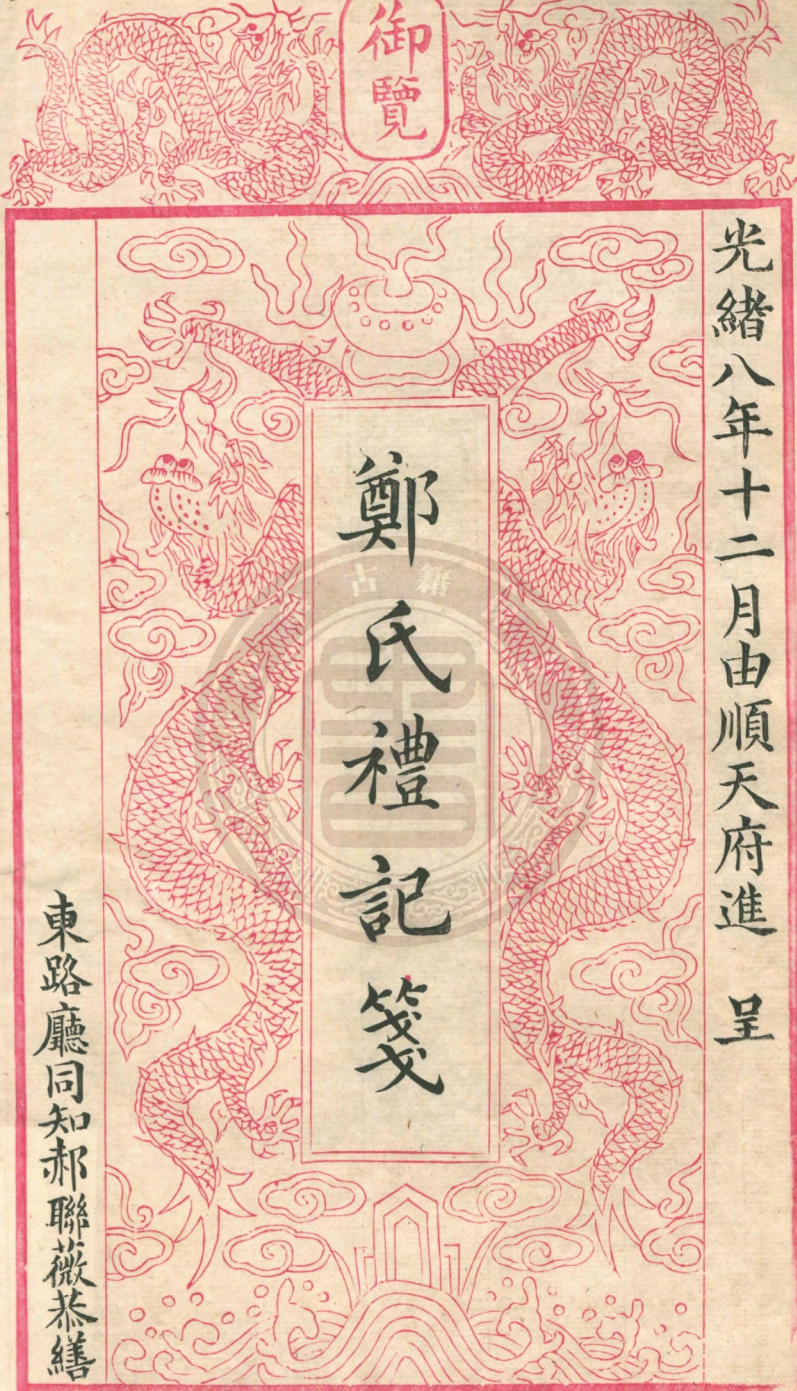 御覽
光緒八年十二月由順天府進 呈
鄭氏禮記箋
東路廳同知郝聯薇恭繕
古籍